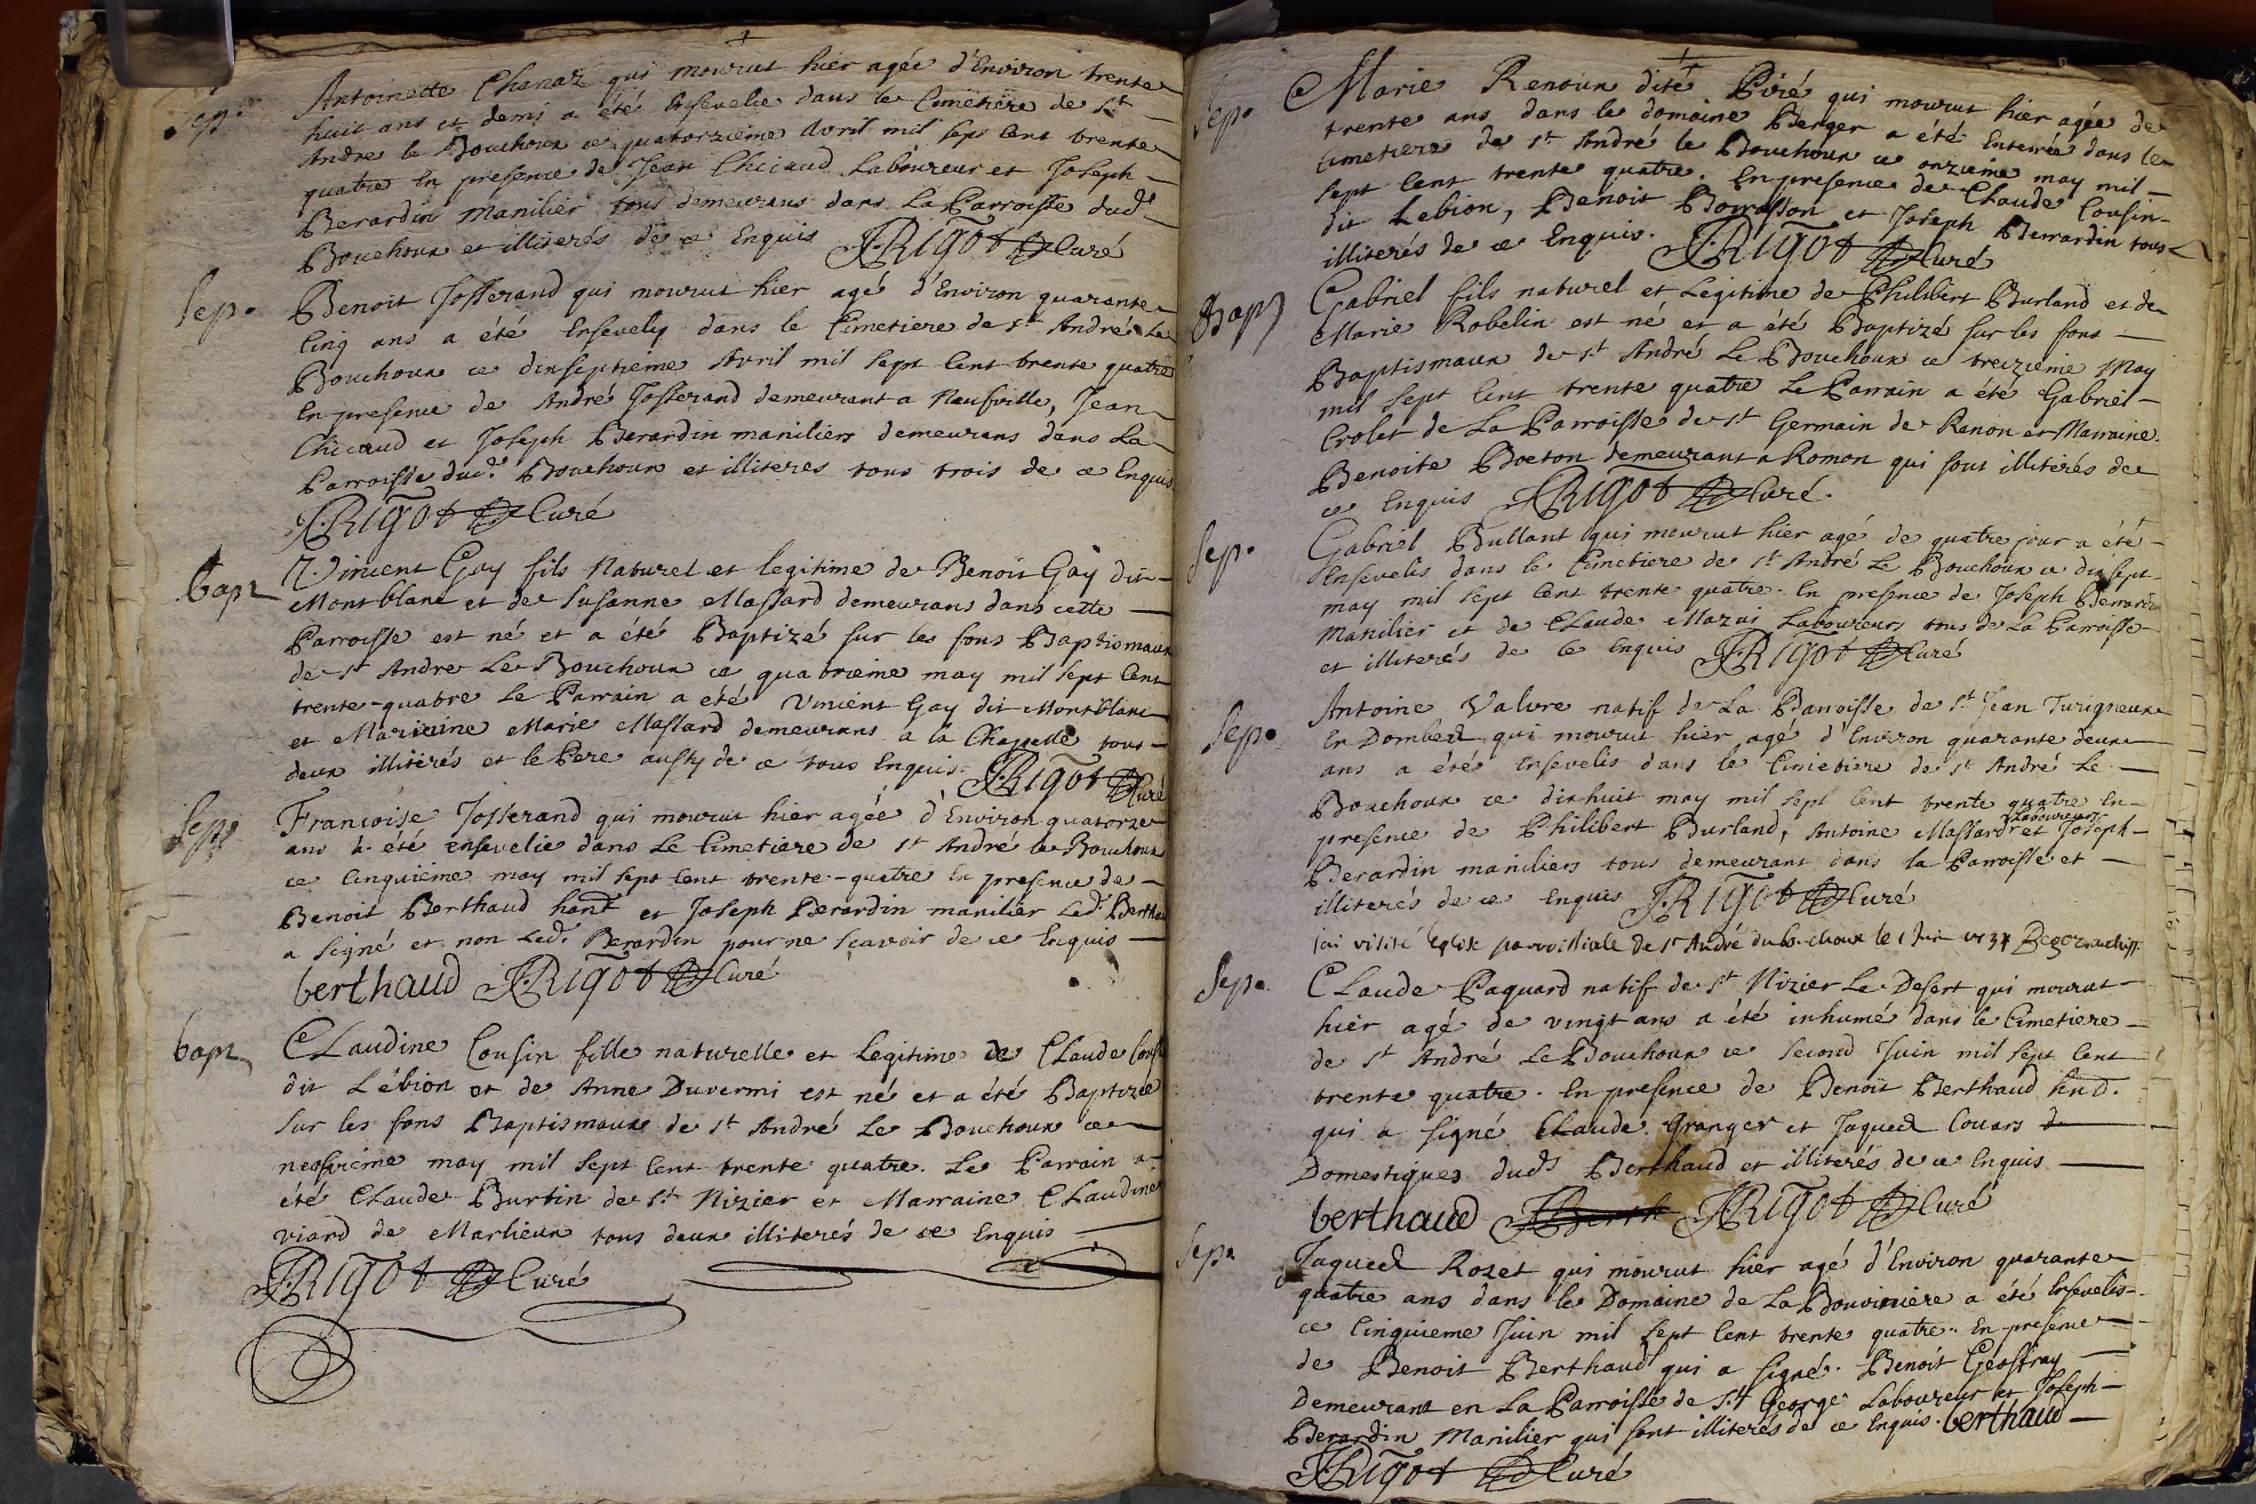 Sep.
Antoinette Chanaz qui mourut hier agée d'Environ trente
huit ans et demi a été Ensevelie dans le Cimetiere de St
Andre le Bouchoux ce quatorzieme Avril mil sept Cent trente
quatre En presence de Jean Chicaud Laboureur et Joseph
Berardin manilier tous demeurans dans La Parroisse dud.
Bouchoux et illiterés de ce Enquis J. Rigot Curé
Sep.
Benoit Josserand qui mourut hier agé d'Environ quarante
Cinq ans a été Ensevely dans le Cimetiere de St André Le
Bouchoux ce dixseptieme Avril mil sept Cent trente quatre
En presence de André Josserand demeurant a Neufville, Jean
Chicaud et Joseph Berardin maniliers demeurans dans La
Parroisse dud. Bouchoux et illiteres tous trois de ce Enquis
J. Rigot Curé
bap
Vincent Gay fils Naturel et legitime de Benoit Gay dit
Montblanc et de Susanne Massard demeurans dans cette
Parroisse est né et a été Baptizé sur les fons Baptismaux
de St Andre Le Bouchoux ce quatrieme may mil sept Cent
trente-quatre Le Parrain a été Vincent Gay dit Montblanc
et Marraine Marie Massard demeurans a la Chapelle tous
deux illiterés et le Pere aussy de ce tous Enquis. J. Rigot Curé
Sep.
Francoise Josserand qui mourut hier agée d'Environ quatorze
ans a été ensevelie dans Le Cimetiere de St André le Bouchoux
ce Cinquiéme may mil sept Cent trente-quatre En presence de
Benoit Berthaud hant et Joseph Berardin manilier Led. Berthaud
a signé et non Led. Berardin pour ne sçavoir de ce Enquis
berthaud J. Rigot Curé
bap
Claudine Cousin fille naturelle et Legitime de Claude Cousin
dit Lébion et de Anne Duvermi est né et a été Baptizée
Sur les fons Baptismaux de St André Le Bouchoux ce
neufvieme may mil sept Cent trente quatre. Le Parrain a
été Claude Burtin de St Nizier et Marraine Claudine
viard de Marlieux tous deux illiterés de ce Enquis
J. Rigot Curé
Sep.
Marie Renoux dite Piré qui mourut hier agée de
trente ans dans le domaine Berger a été Enterrée dans le
Cimetiere de St André le Bouchoux ce onzieme may mil
sept Cent trente quatre. En presence de Claude Cousin
dit Lebion, Benoit et Joseph Berrardin tous
illiterés de ce Enquis. J. Rigot Curé
Bap
Gabriel fils naturel et Legitime de Philibert Burland et de
Marie Robelin est né et a été Baptizé sur les fons
Baptismaux de St André Le Bouchoux ce treizieme May
mil sept Cent trente quatre Le Parrain a été Gabriel
Crolet de La Parroisse de St Germain de Renon et Marraine
Benoite Boeton demeurant a Romon qui sont illiterés de
ce Enquis J. Rigot Curé.
Sep.
Gabriel Bullant qui mourut hier agé de quatre jour a été
Ensevelis dans le Cimetiere de St André Le Bouchoux ce dixsept
may mil sept Cent trente quatre. En presence de Joseph Berrardin
Manilier et de Claude Mazui Laboureurs tous de La Parroisse
et illiterés de ce Enquis J. Rigot Curé
Sep.
Antoine Valure natif de La Parroisse de St Jean Turigneux
En Dombes qui mourut hier agé d'Environ quarante deux
ans a été Ensevelis dans le Cimetiere de St André Le
Bouchoux ce dixhuit may mil sept Cent trente quatre En
presence de Philibert Burland, Antoine Massard Laboureurs et Joseph
Berardin maniliers tous demeurant dans la Parroisse et
illiterés de ce Enquis J. Rigot Curé
J'ai visité l'eglise parroissiale de St André du bouchoux le 1 Juin 1734
Sep.
Claude Paquard natif de St Nizier Le Desert qui mourut
hier agé de vingt ans a été inhumé dans le Cimetiere
de St André Le Bouchoux ce second Juin mil sept Cent
trente quatre. En presence de Benoit Berthaud
qui a signé Claude Granger et Jaques Couars
Domestiques dud. Berthaud et illiterés de ce Enquis
berthaud J. Rigot Curé
Sep.
Jaques Rozet qui mourut hier agé d'Environ quarante
quatre ans dans le Domaine de La Bouviniere a été Ensevelis
ce Cinquieme Juin mil sept Cent trente quatre. En presence
de Benoit Berthaud qui a signé. Benoit Geoffray
Demeurant en La Parroisse de St George Laboureur et Joseph
Berardin Manilier qui sont illiterés de ce Enquis. berthaud
J. Rigot Curé